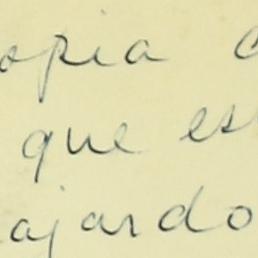 opia c
que es
ajardo